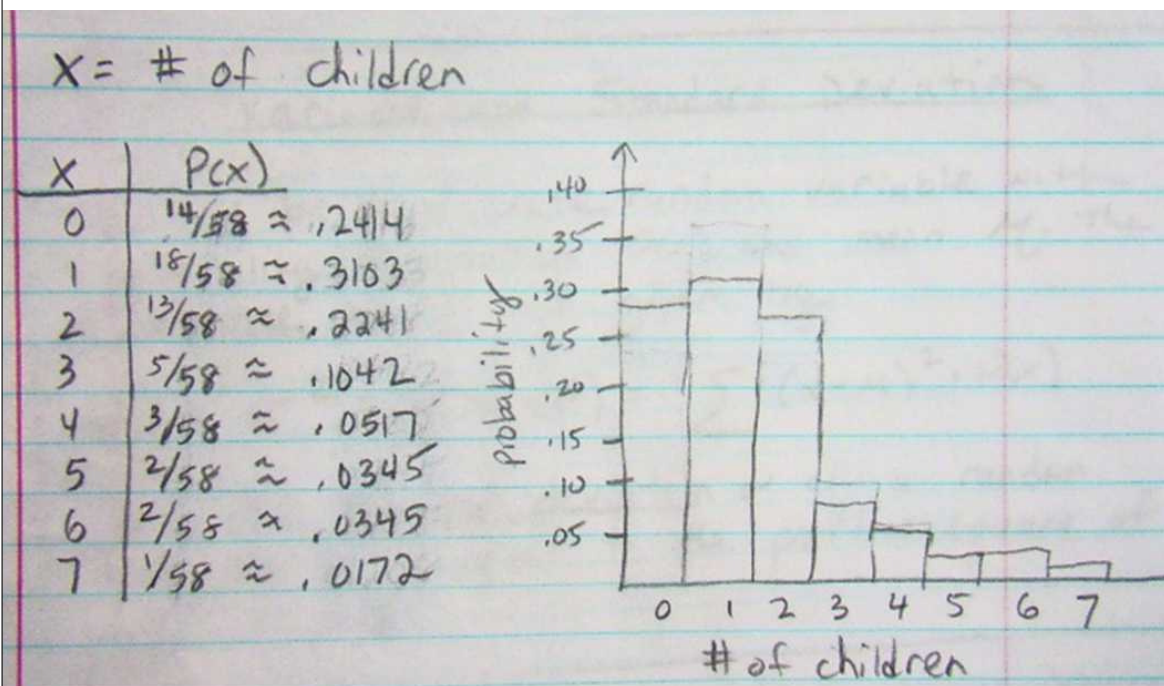 X = # of children
X P(x)
0 14/58 ≈ .2414
1 18/58 ≈ .3103
2 13/58 ≈ .2241
3 5/58 ≈ .1042
4 3/58 ≈ .0517
5 2/58 ≈ .0345
6 2/58 ≈ .0345
7 1/58 ≈ .0172
probability
.40
.35
.30
.25
.20
.15
.10
.05
0 1 2 3 4 5 6 7
# of children